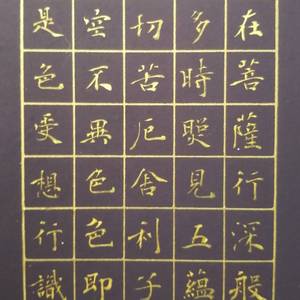 在菩薩行深般
多時照見五蘊
切苦厄舍利子
空不異色色即
是色受想行識